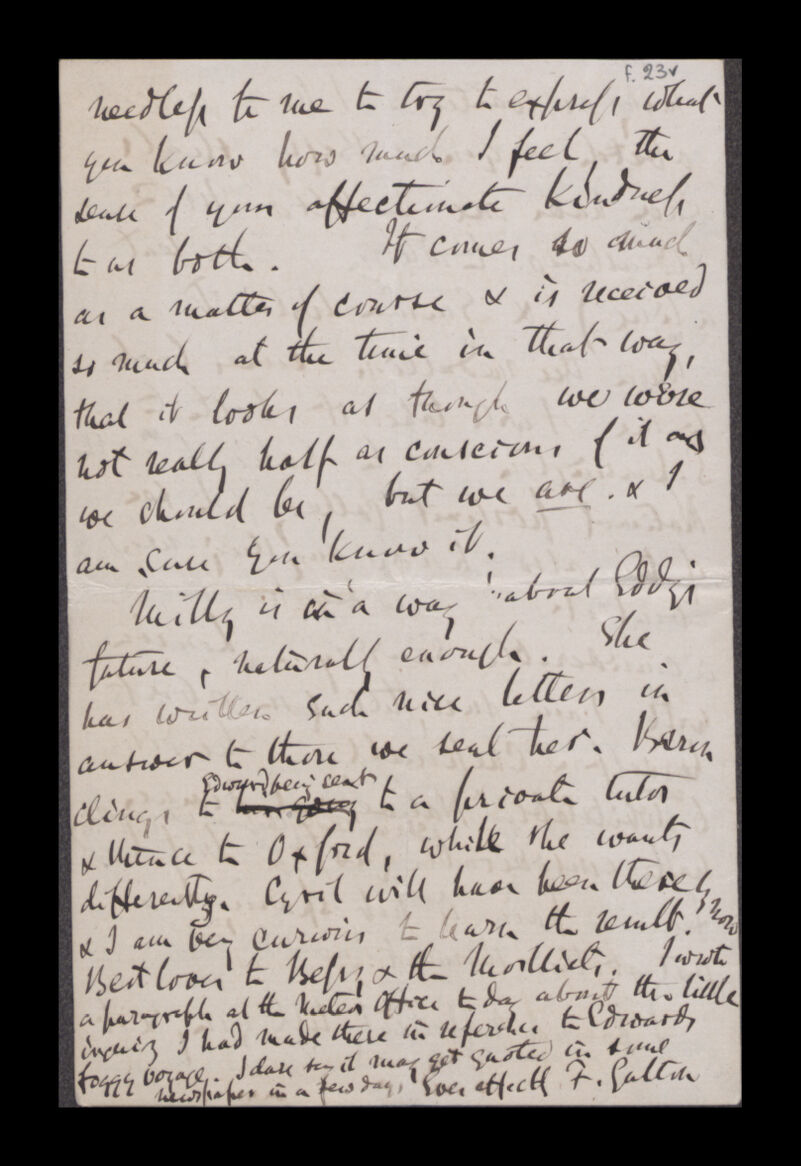 f. 23v
needless to me to try to express what
you know how much I feel, the
sense of your affectionate kindness
to us both. It comes so much
as a matter of course & is received
so much at the time in that way,
that it looks as though we were
not really half as conscious of it as
we should be, but we are. & I
am sure you know it.
Milly is in a way about Eddy's
future, naturally enough. She
has written such nice letters in
answer to those we sent her.
Edward being sent
clings to to a private tutor
& thence to Oxford, while she wants
differently. Cyril will have been there by now
& I am very curious to learn the result.
Best loves to Bessy & the Morlliets. I wrote
a paragraph at the Meteor Office to day about the little
inquiry I had made there in reference to Edwards
foggy voyage. I dare say it may get quoted in some
newspaper in a few days. Ever affectly F. Galton